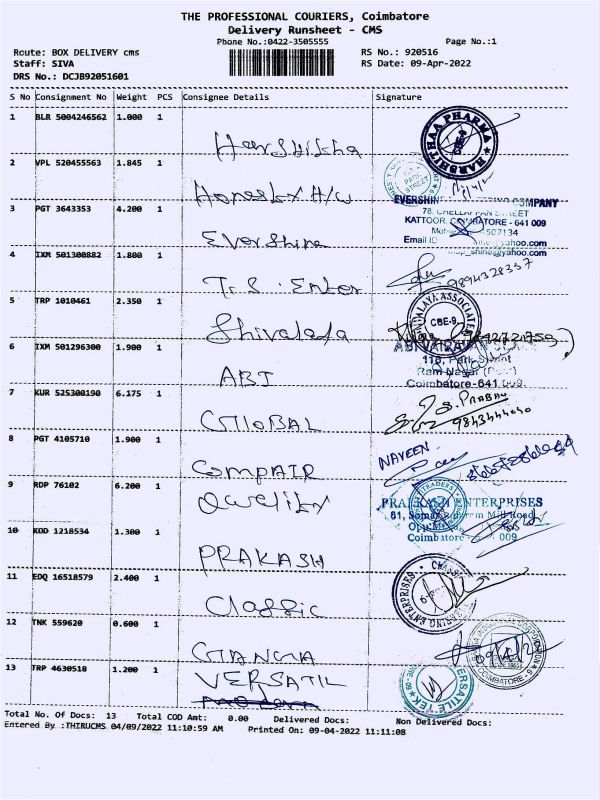 THE PROFESSIONAL COURIERS, Coimbatore
Delivery Runsheet - CMS
Phone No.:0422-3505555 Page No.:1
Route: BOX DELIVERY cms RS No.: 920516
Staff: SIVA RS Date: 09-Apr-2022
DRS No.: DCJB92051601
S No Consignment No Weight PCS Consignee Details Signature
1 BLR 5004246562 1.000 1 Harshitha HARSHITHAA PHARMA
2 VPL 520455563 1.845 1 Honesty H/W PARK STREET
3 PGT 3643353 4.200 1 Evershine EVERSHINE COMPANY
KATTOOR, COIMBATORE - 641 009
Email ID yahoo.com
4 IXM 501300882 1.800 1 T.S. Enter 9894328337
5 TRP 1010461 2.350 1 Shivalaya ASSOCIATES CBE-9
6 IXM 501296300 1.900 1 ABI
Ram Nagar
Coimbatore-641 009
7 KUR 525300190 6.175 1 GLOBAL S. PRABHU
8 PGT 4105710 1.900 1 COMPAIR NAVEEN
9 RDP 76102 6.200 1 Quality TRADERS
PRAKASH ENTERPRISES
Mill Road
Coimbatore 009
10 KOD 1218534 1.300 1 PRAKASH
11 EDQ 16518579 2.400 1 Classic ENTERPRISES
12 TNK 559620 0.600 1 GANGA COIMBATORE
13 TRP 4630518 1.200 1 VERSATIL VERSATILE TEK
Total No. Of Docs: 13 Total COD Amt: 0.00 Delivered Docs: Non Delivered Docs:
Entered By :THIRUCMS 04/09/2022 11:10:59 AM Printed On: 09-04-2022 11:11:08